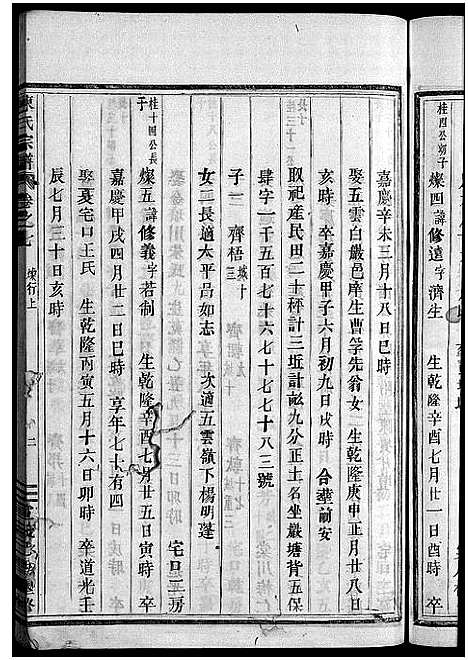 桂四公朔子 燦四諱修遠字濟生 生乾隆辛酉七月廿一日酉時 卒
嘉慶辛未三月十八日巳時
娶五雲白嚴邑庠生曹孚先翁女 生乾隆庚申正月廿八日
亥時 卒嘉慶甲子六月初九日戌時 合葬前安
取祀產民田二十秤計三坵計畝九分正土名坐嚴塘背五保
肆字一千五百七十六七十七七十八三號
子一 齊梧 城十三
女二長適太平呂如志 次適五雲嶺下楊明蓬
桂十四公長子 燦五諱修義字若制 生乾隆辛酉七月廿五日寅時 卒
嘉慶甲戌四月廿二日巳時 享年七十有四 宅口三房
娶夏宅口王氏 生乾隆丙寅五月十六日卯時 卒道光壬
辰七月三十日亥時
陳氏宗譜 卷之七 燦行上 二